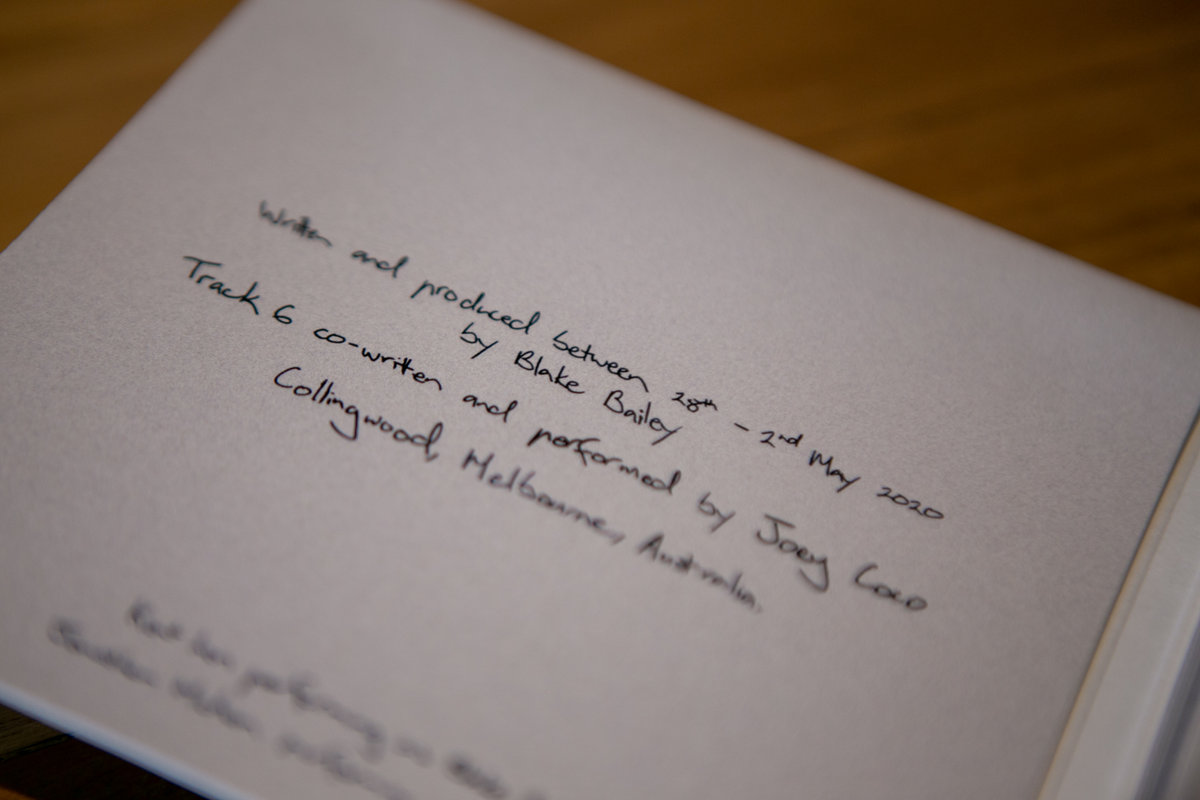 Written and produced between 28th - 2nd May 2020
by Blake Bailey
Track 6 co-written and performed by Joey Coco
Collingwood, Melbourne, Australia.
performing